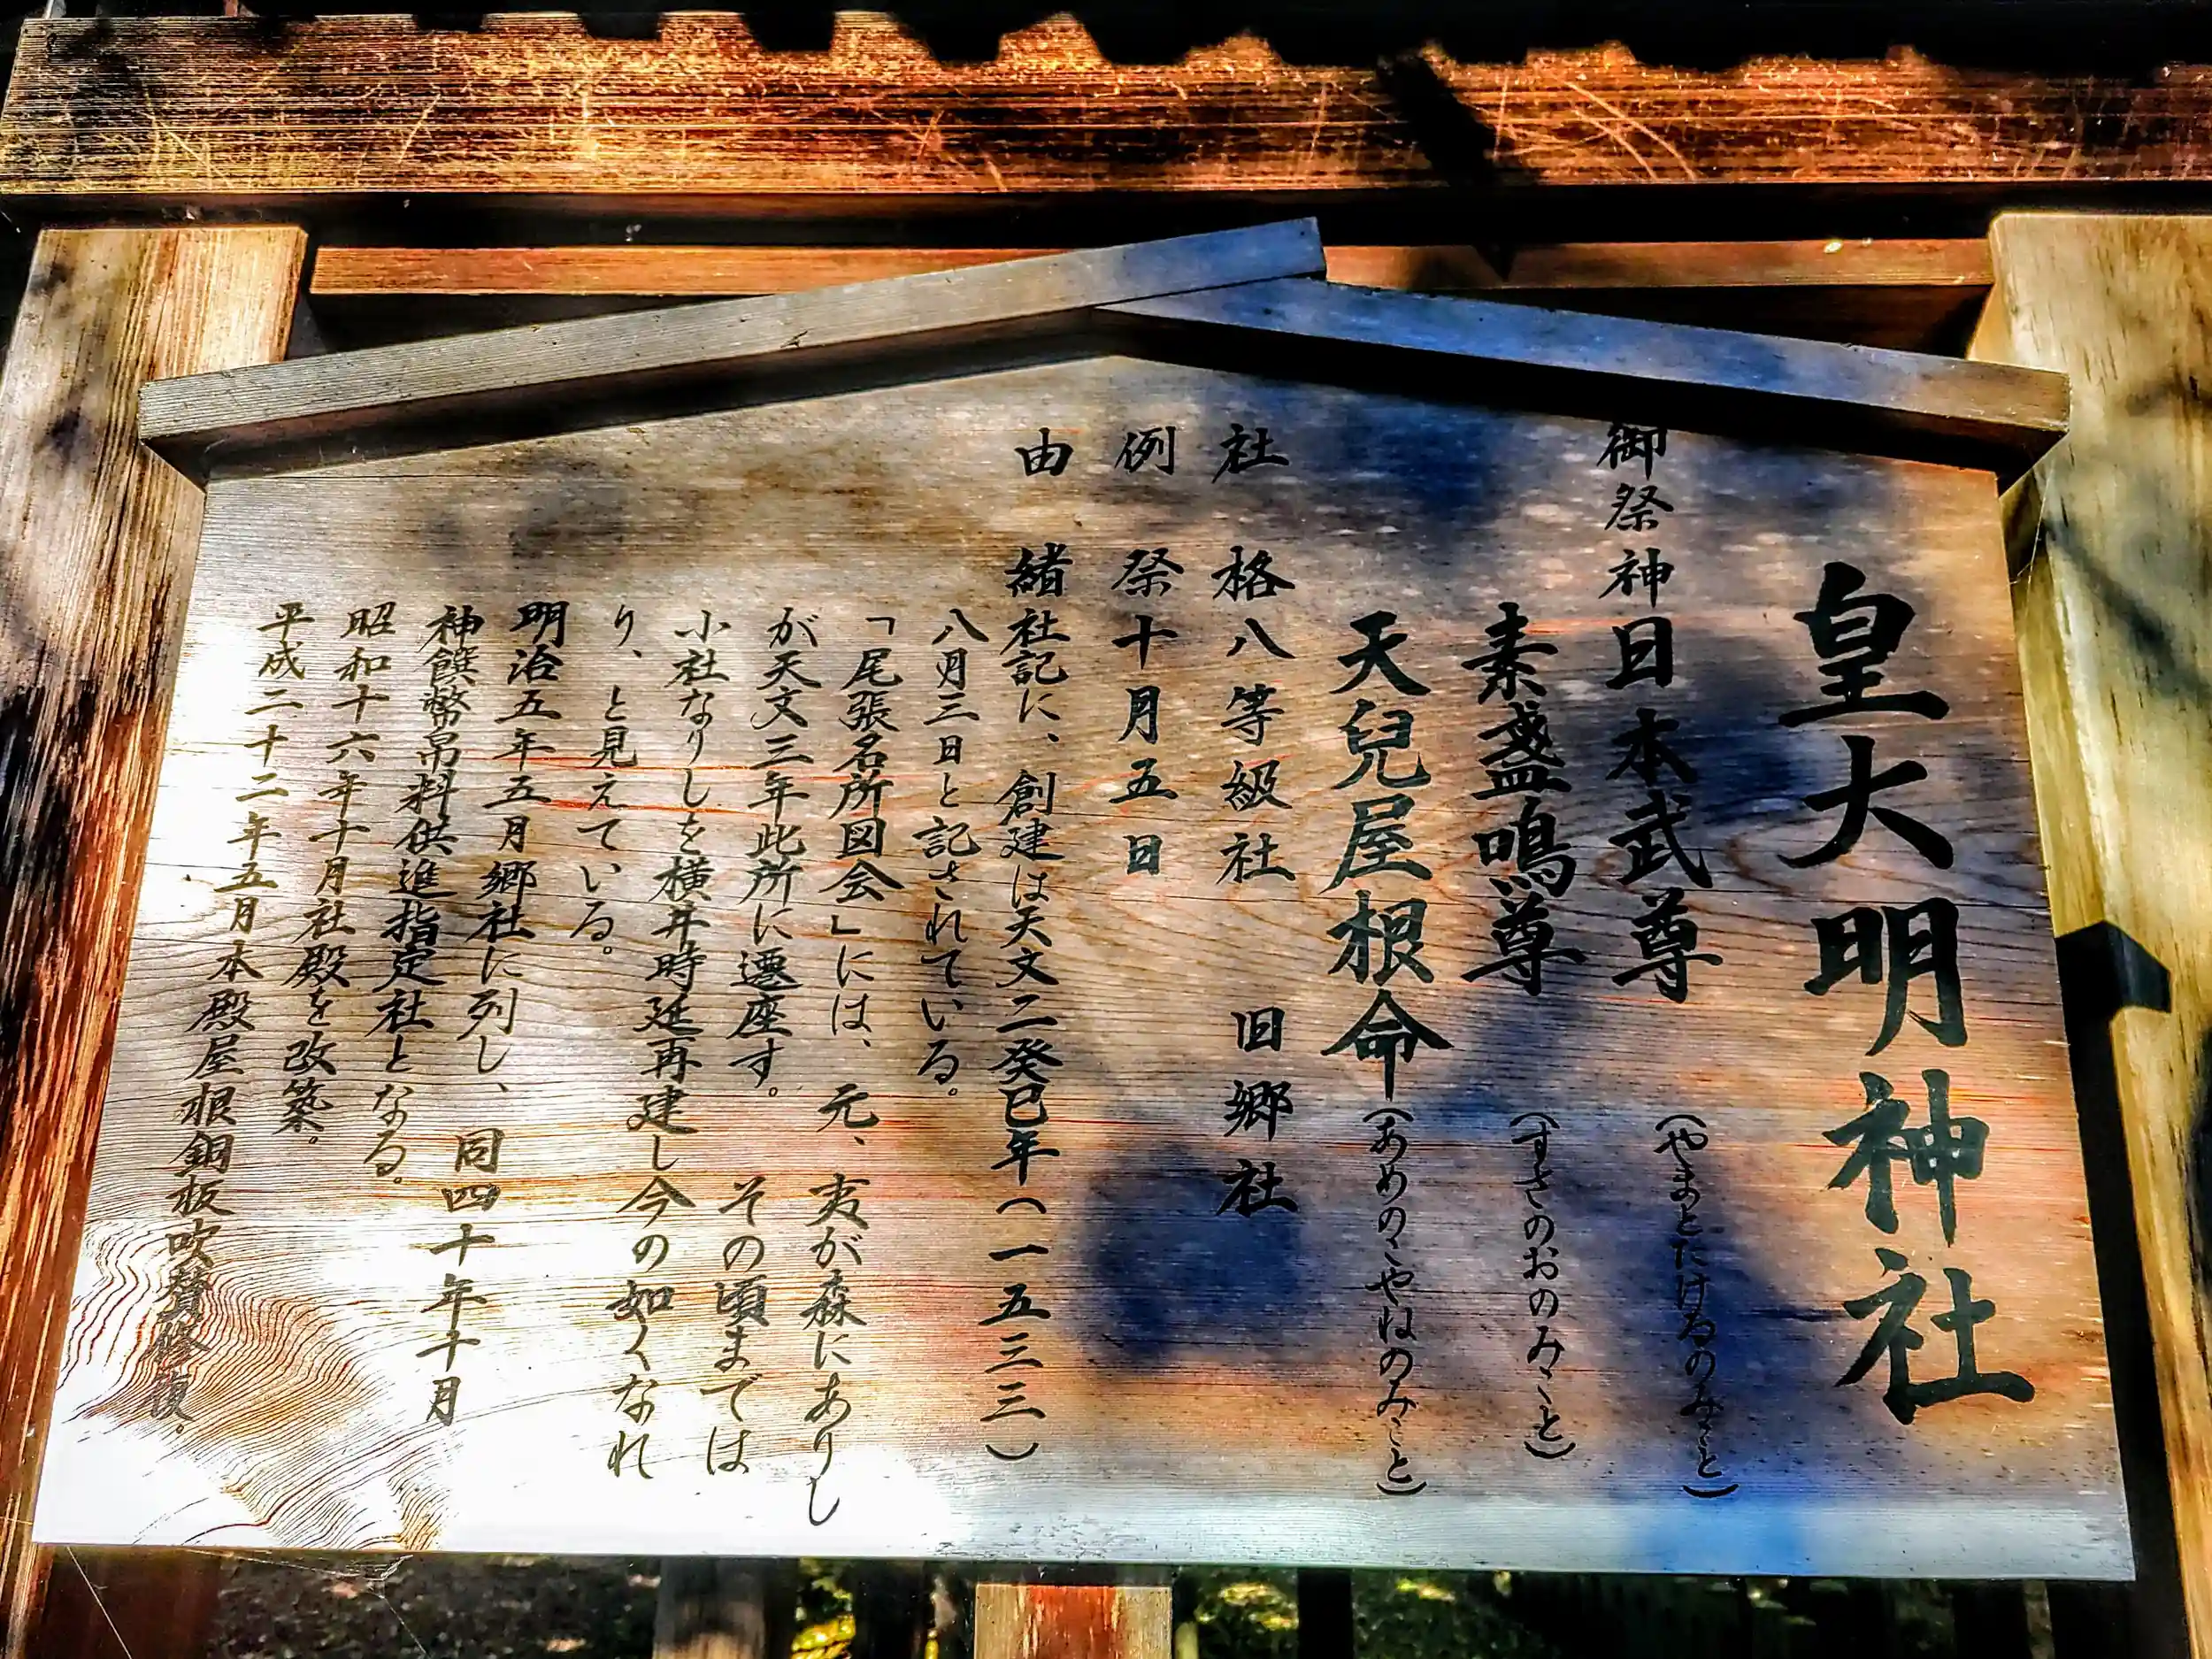 皇大明神社
御祭神日本武尊（やまとたけるのみこと）
素盞鳴尊（すさのおのみこと）
天兒屋根命（あめのこやねのみこと）
社格八等級社　旧郷社
例祭十月五日
由緒社記に、創建は天文二癸巳年（一五三三）
八月三日と記されている。
「尾張名所図会」には、元、夷が森にありし
が天文三年此所に遷座す。その頃までは
小社なりしを横井時延再建し今の如くなれ
り、と見えている。
明治五年五月郷社に列し、同四十年十月
神饌幣帛料供進指定社となる。
昭和十六年十月社殿を改築。
平成二十二年五月本殿屋根銅板吹替修復。